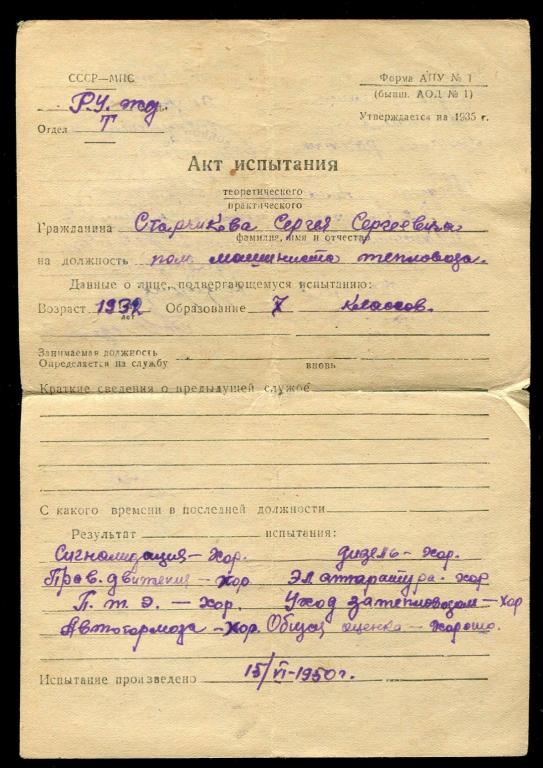 СССР—МПС
Форма АПУ № 1
(бывш. АОД № 1)
Р.У. жд.
Отдел Т
Утверждается на 1935 г.
Акт испытания
теоретического
практического
Гражданина Старчикова Сергея Сергеевича
фамилия, имя и отчество
на должность пом. машиниста тепловоза.
Данные о лице, подвергающемуся испытанию:
Возраст 1932 Образование 7 классов.
лет
Занимаемая должность
Определяется на службу вновь
Краткие сведения о предыдущей службе
С какого времени в последней должности
Результат испытания:
Сигнализация — хор. дизель — хор.
Прав. движения — хор эл аппаратура - хор
П. т. э. — хор. Уход за тепловозом — хор
Автотормоза — хор. Общая оценка — хорошо.
Испытание произведено 15/VI-1950 г.